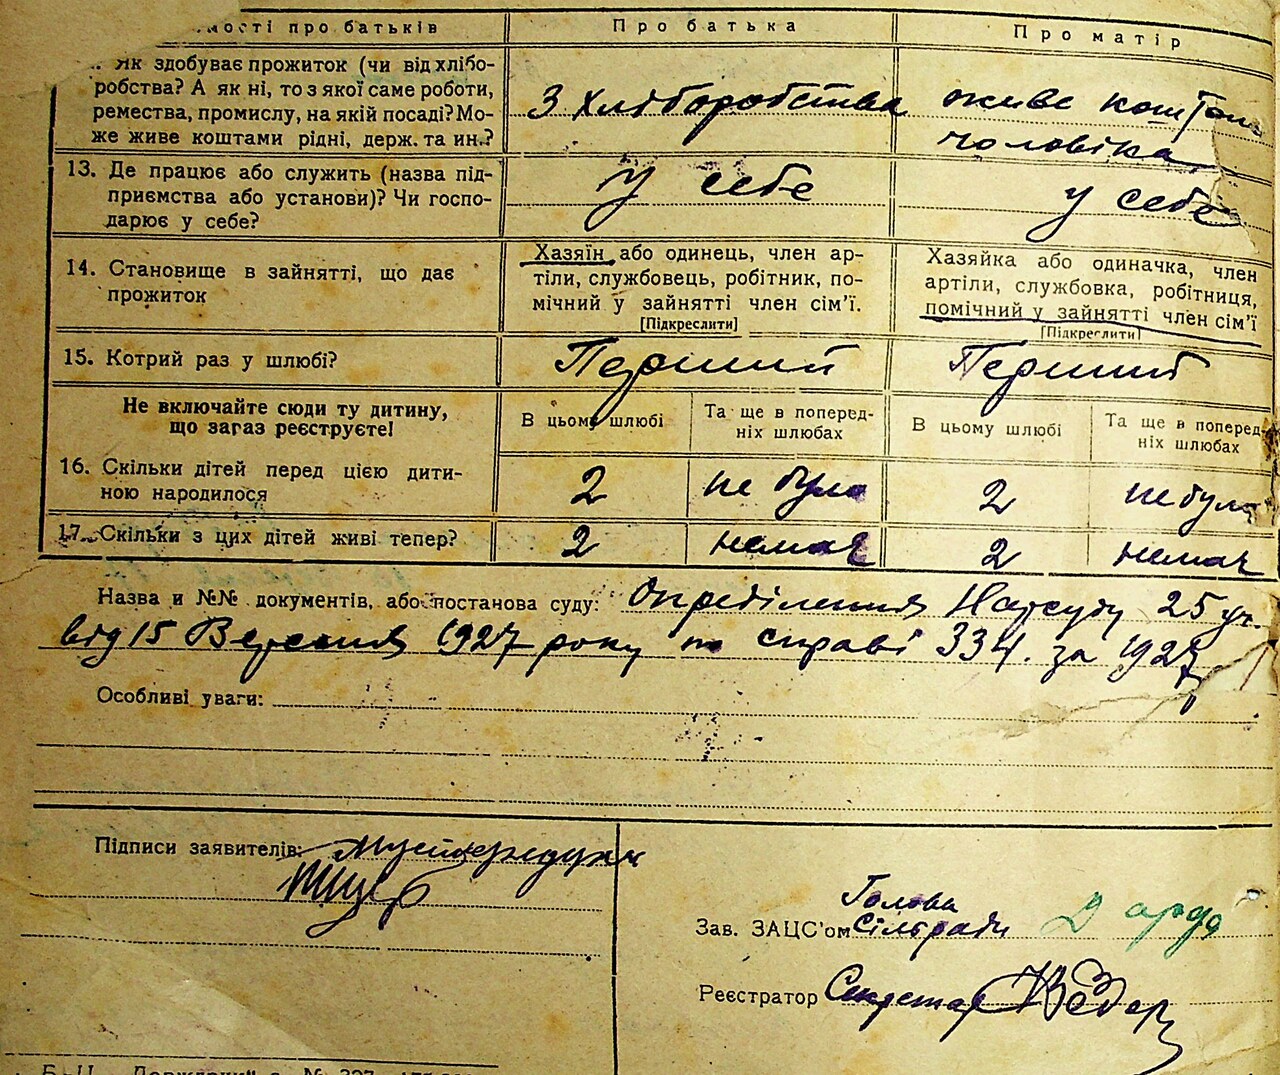 мості про батьків
Про батька
Про матір
Як здобуває прожиток (чи від хлібо-
робства? А як ні, то з якої саме роботи,
ремества, промислу, на якій посаді? Мо-
же живе коштами рідні, держ. та ин.?
З хліборобства
живе коштом
чоловіка
13. Де працює або служить (назва під-
приємства або установи)? Чи госпо-
дарює у себе?
У себе
у себе
14. Становище в зайнятті, що дає
прожиток
Хазяїн або одинець, член ар-
тіли, службовець, робітник, по-
мічний у зайнятті член сім'ї.
[Підкреслити]
Хазяйка або одиначка, член
артіли, службовка, робітниця,
помічний у зайнятті член сім'ї
[Підкреслити]
15. Котрий раз у шлюбі?
Перший
Перший
Не включайте сюди ту дитину,
що загаз реєструєте!
В цьому шлюбі
Та ще в поперед-
ніх шлюбах
В цьому шлюбі
Та ще в поперед-
ніх шлюбах
16. Скільки дітей перед цією дити-
ною народилося
2
не було
2
не було
17. Скільки з цих дітей живі тепер?
2
немає
2
немає
Назва и №№ документів, або постанова суду: Определення Нарсуду 25 уч.
від 15 Вересня 1927 року по справі 334. за 1927
Особливі уваги:
Підписи заявителів:
Голова
Зав. ЗАЦС'ом Сільради
Реєстратор Секретар